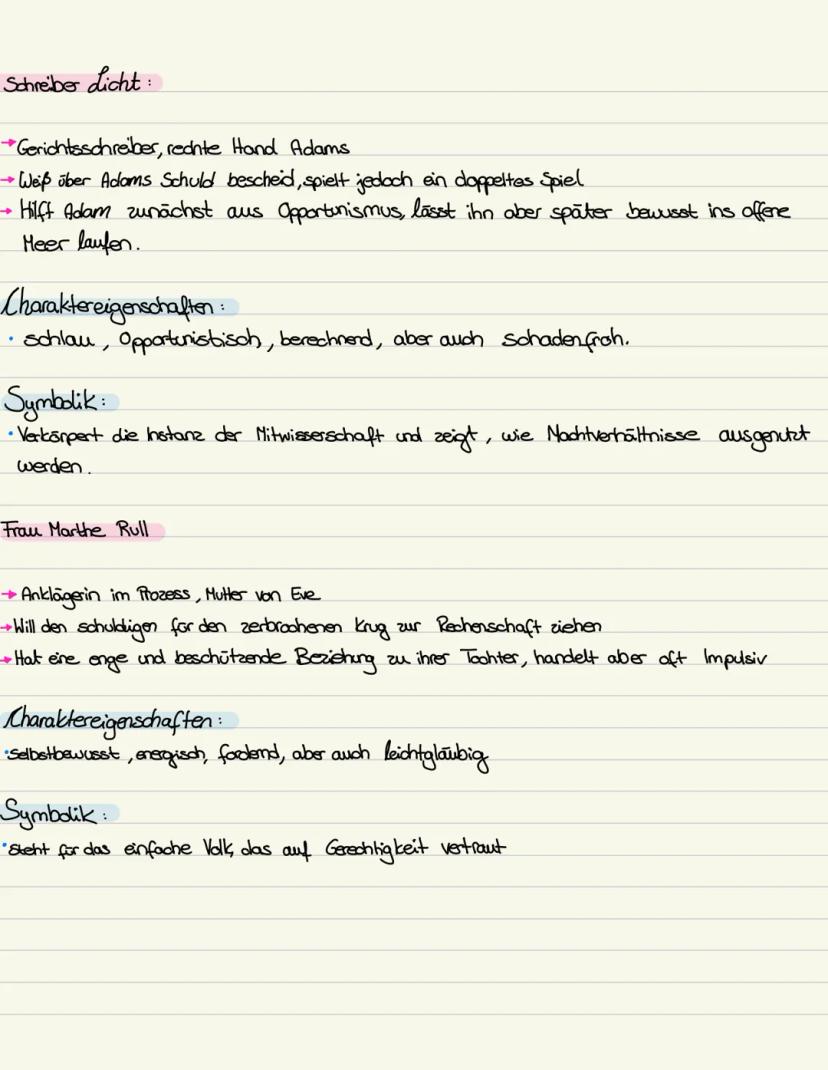 Schreiber Licht :
→ Gerichtsschreiber, rechte Hand Adams
→ Weiß über Adams Schuld bescheid, spielt jedoch ein doppeltes Spiel
→ Hilft Adam zunächst aus Opportunismus, lässt ihn aber später bewusst ins offene
Meer laufen.
Charaktereigenschaften :
• schlau, Opportunistisch, berechnend, aber auch schadenfroh.
Symbolik :
• Verkörpert die Instanz der Mitwisserschaft und zeigt, wie Machtverhältnisse ausgenutzt
werden.
Frau Marthe Rull
→ Anklägerin im Prozess, Mutter von Eve
→ Will den schuldigen für den zerbrochenen Krug zur Rechenschaft ziehen
→ Hat eine enge und beschützende Beziehung zu ihrer Tochter, handelt aber oft Impulsiv
Charaktereigenschaften :
• selbstbewusst, energisch, fordend, aber auch leichtgläubig
Symbolik :
• steht für das einfache Volk, das auf Gerechtigkeit vertraut